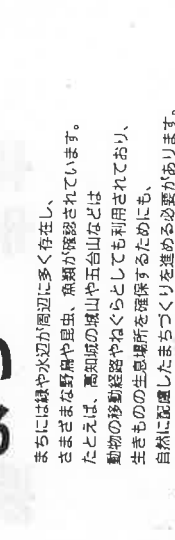 まちには緑や水辺が周辺に多く存在し、
さまざまな野鳥や昆虫、魚類が確認されています。
たとえば、高知城の城山や五台山などは
動物の移動経路やねぐらとしても利用されており、
生きものの生息場所を確保するためにも、
自然に配慮したまちづくりを進める必要があります。